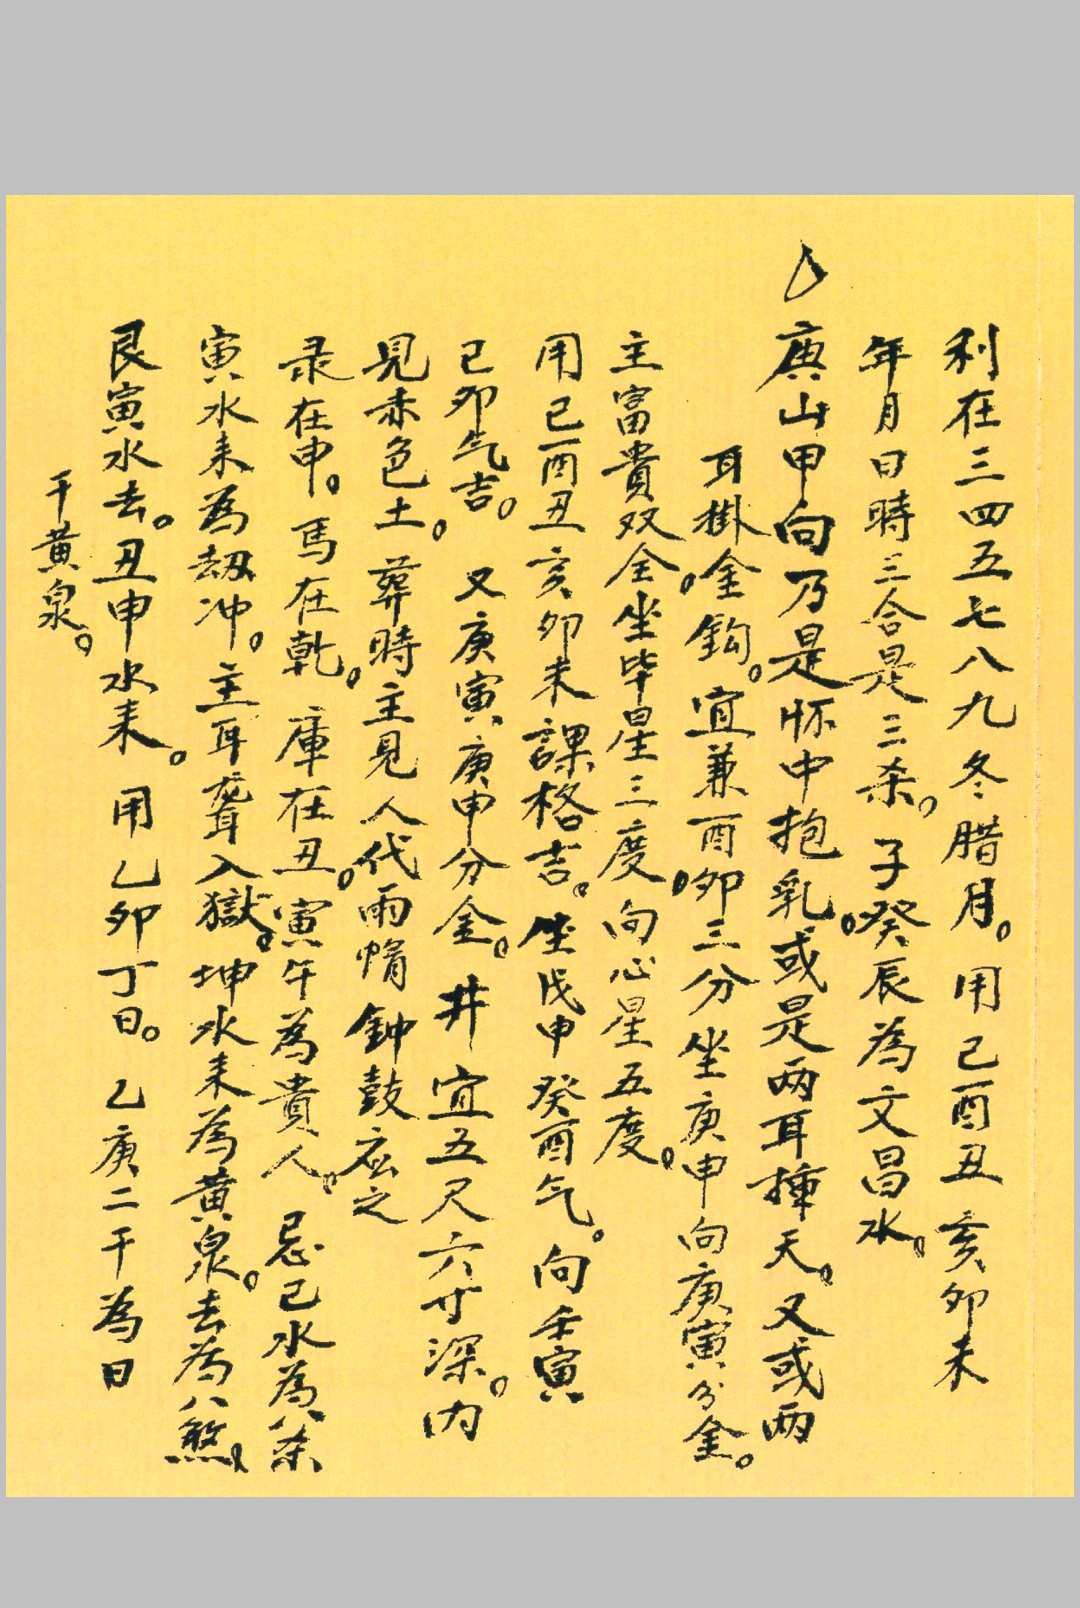 利在三四五七八九冬腊月。用己酉丑亥卯未
年月日時三合是三杀。子癸辰為文昌水。
庚山甲向乃是怀中抱乳。或是两耳捶天。又或两
耳掛金鈎。宜兼酉卯三分坐庚申向庚寅分金。
主富貴双全。坐毕星三度。向心星五度。
用己酉丑亥卯未課格吉。坐戊申癸酉气。向壬寅
己卯气吉。又庚寅庚申分金。井宜五尺六寸深。内
見赤色土。葬時主見人代雨帽钟鼓应之
录在申。馬在乾。庫在丑。寅午為貴人。忌己水為八杀
寅水来為劫冲。主耳聾入獄。坤水来為黄泉。去為八煞。
艮寅水去。丑申水来。用乙卯丁日。乙庚二干為日
干黄泉。